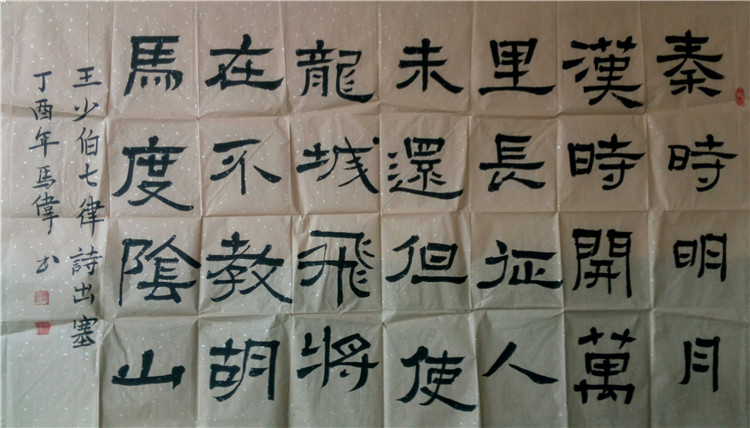 秦時明月
漢時開萬
里長征人
未還但使
龍城飛將
在不教胡
馬度陰山
王少伯七律詩出塞
丁酉年馬偉书